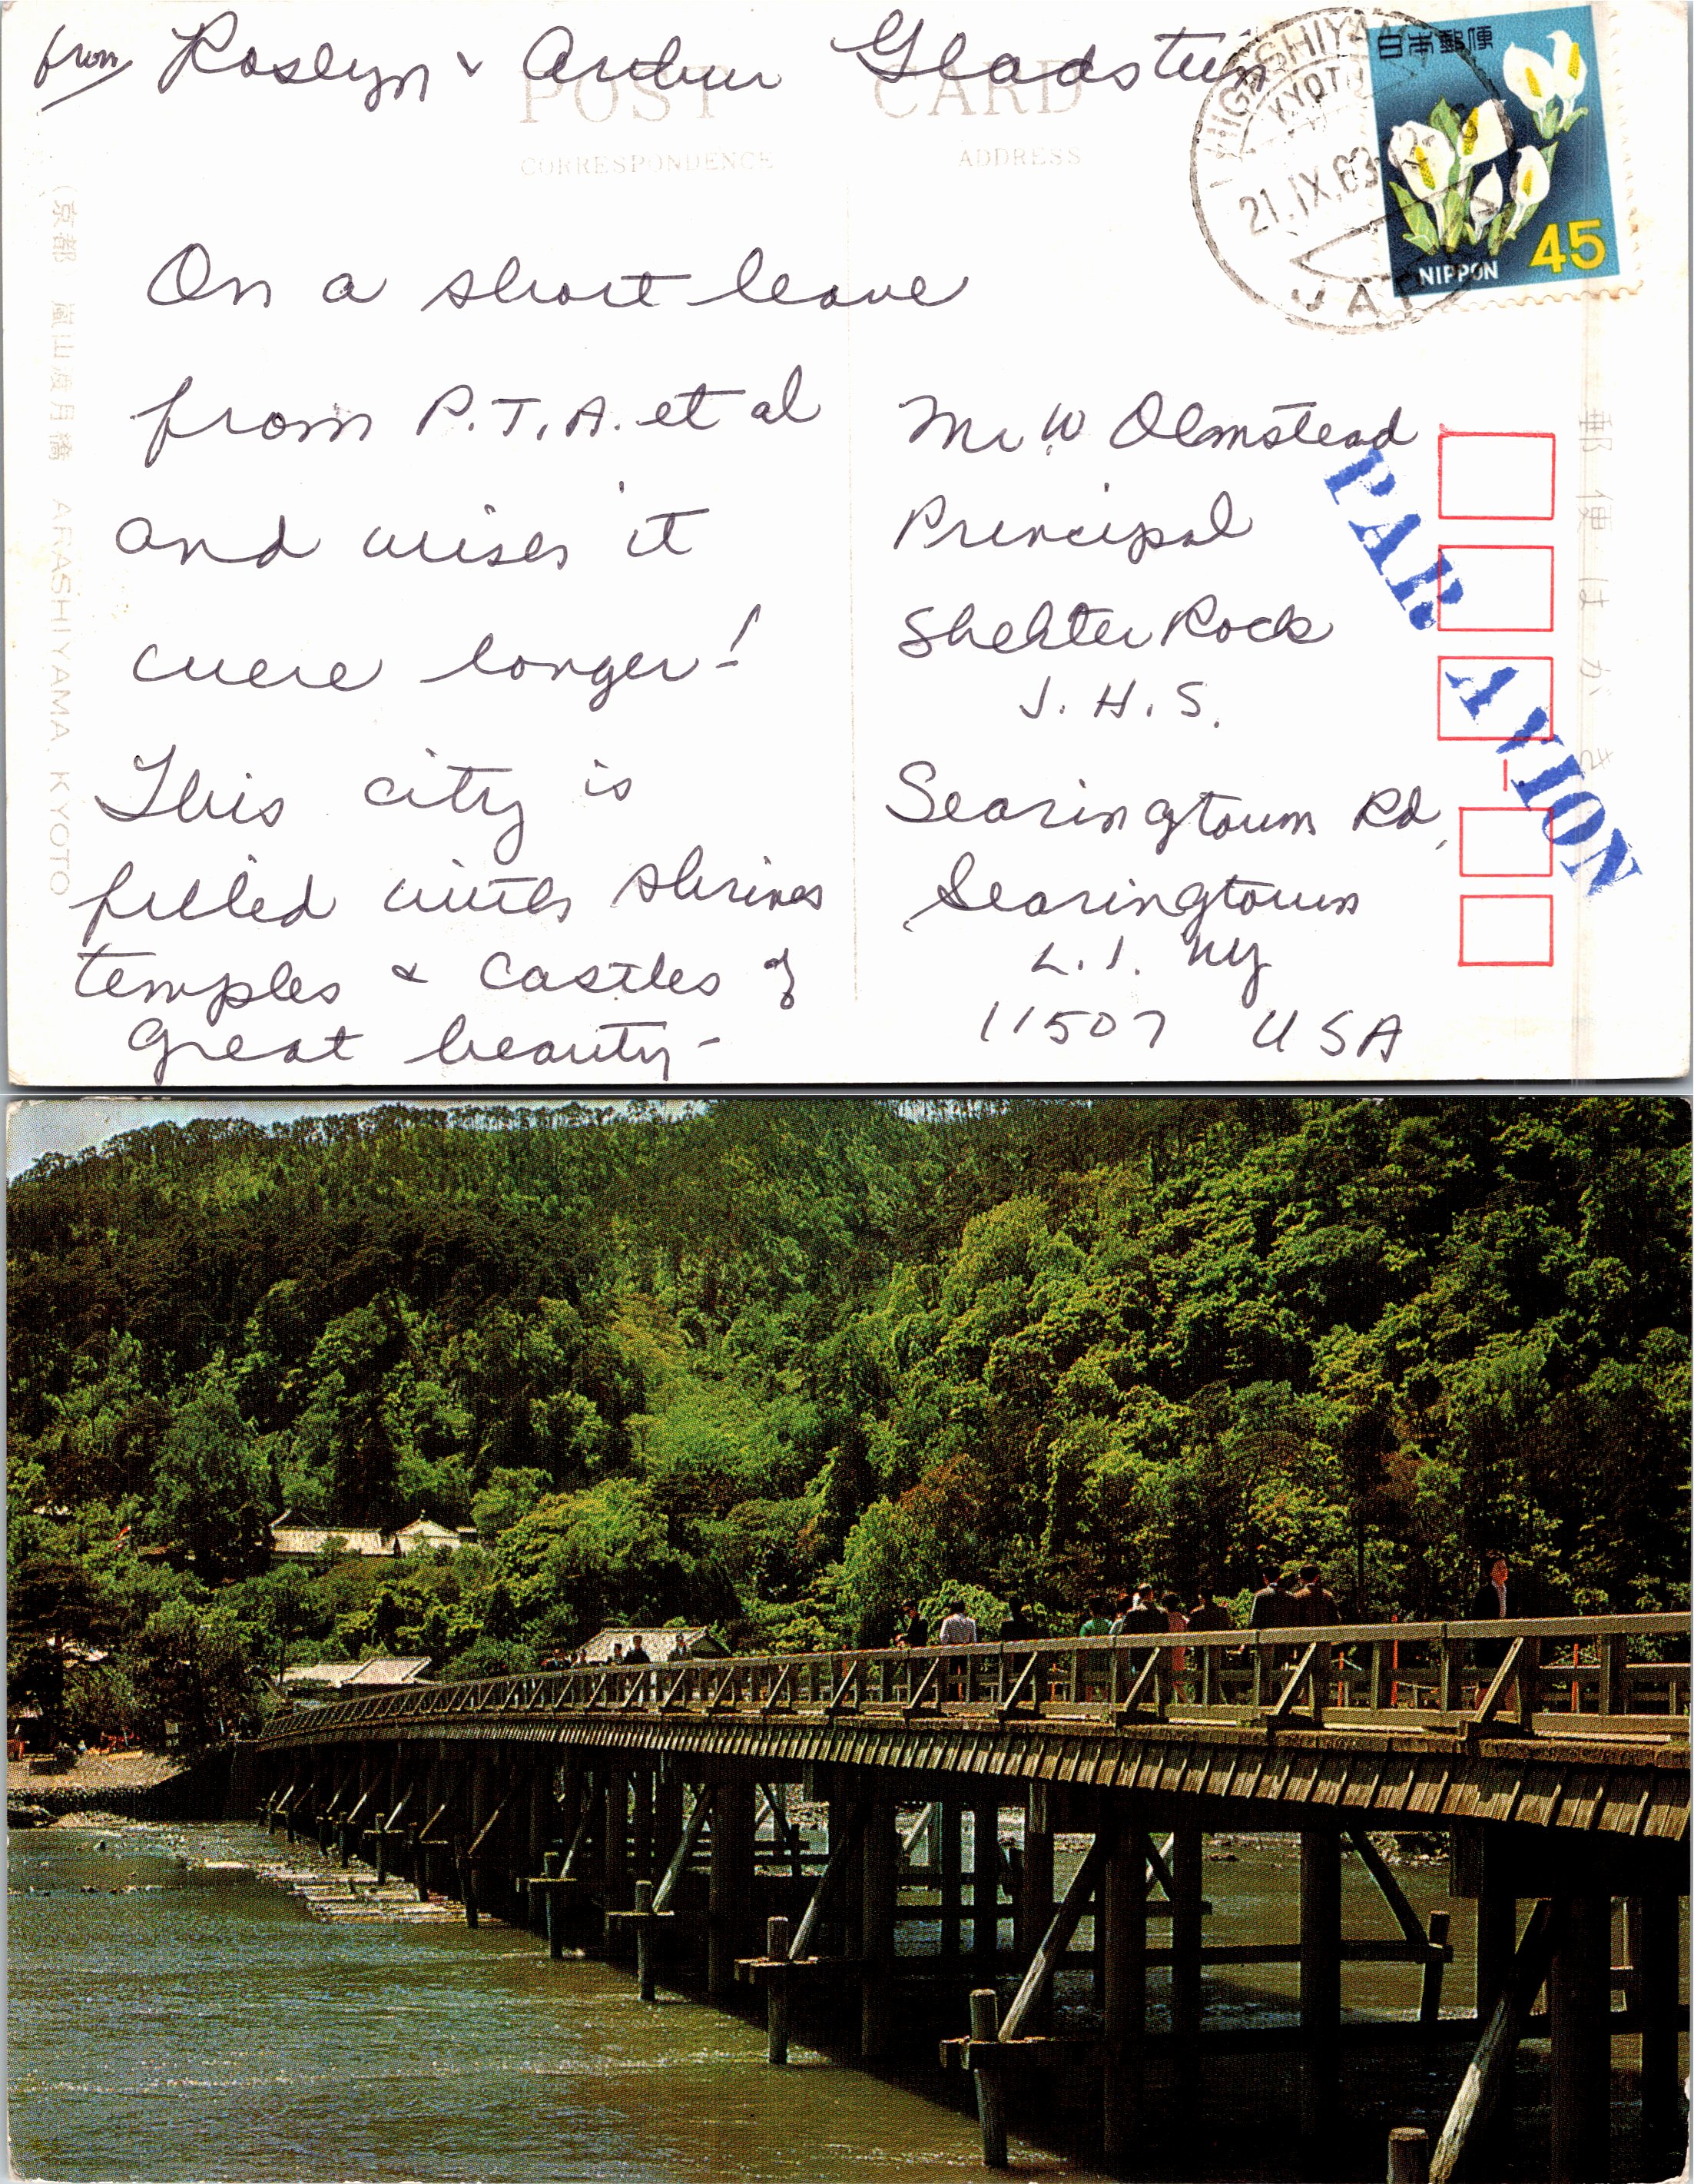 from Roslyn & Arthur Gladstein
POST CARD
CORRESPONDENCE ADDRESS
HIGASHIYAMA
KYOTO
21.IX.6
JAPAN
日本郵便
NIPPON 45
(京都 嵐山渡月橋 ARASHIYAMA. KYOTO
On a short leave
from P.T.A. et al
and wises it
were longer!
This city is
filled with shrines
temples & castles of
great beauty-
Mr W Olmstead
Principal
Shelter Rock
J. H. S.
Searingtown Rd,
Searingtown
L.I. NY
11507 USA
PAR AVION
郵便はがき